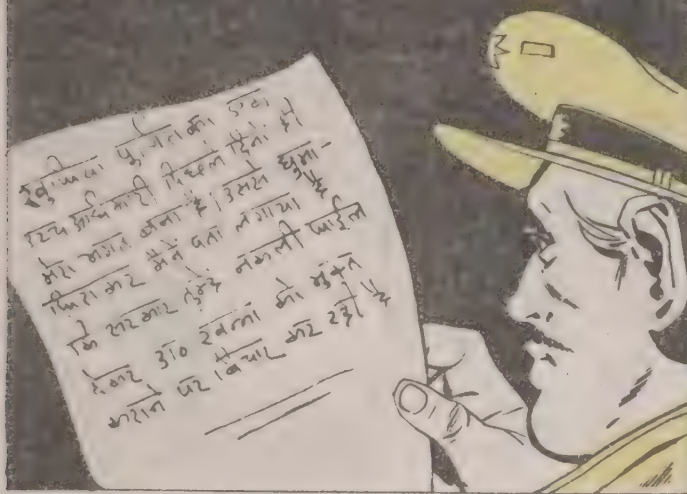 खुफिया पुलिस का एक
उच्च अधिकारी पिछले दिनों ही
मेरा भगत बना है। उससे घुमा-
फिरा कर मैंने पता लगाया है
कि सरकार तुम्हें नकली फाईल
देकर डॉ० खन्ना को मुक्त
कराने पर विचार कर रही है